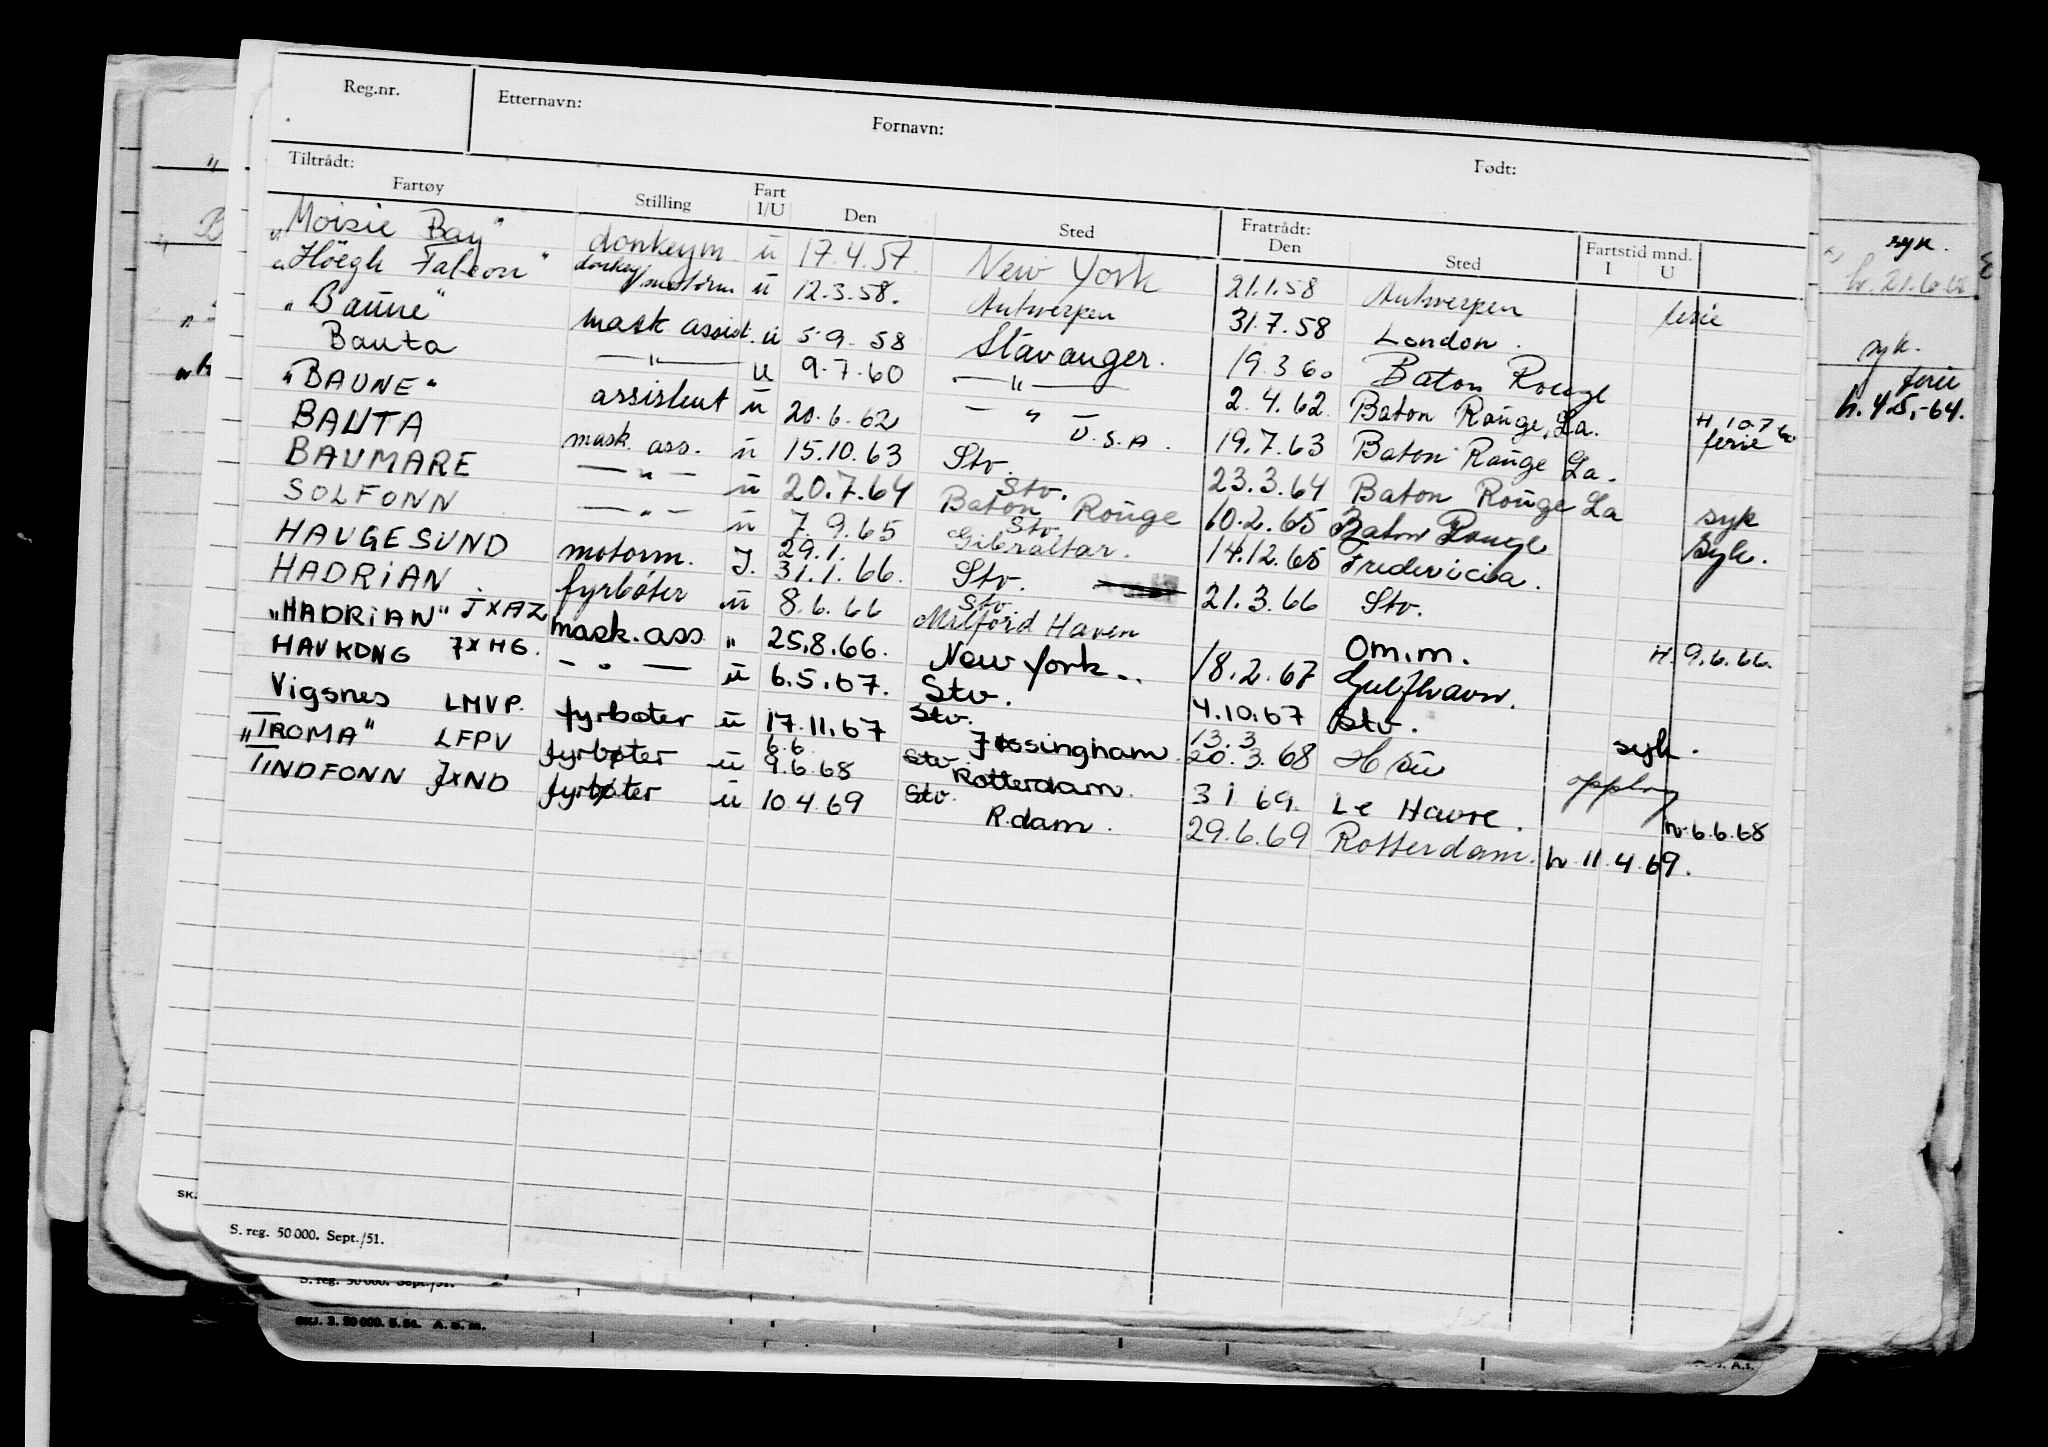 Reg.nr. Etternavn: Fornavn: Født:
Tiltrådt: Fratrådt:
Fartøy Stilling Fart I/U Den Sted Den Sted Fartstid mnd. I U
"Moisie Bay" donkeym ü 17.4.57. New York 21.1.58 Antwerpen ferie
"Höegh Falcon" donkey/motorm ü 12.3.58. Antwerpen 31.7.58 London.
"Baune" mask assist. ü 5.9.58 Stavanger. 19.3.60 Baton Rouge
Bauta —"— ü 9.7.60 —"— 2.4.62. Baton Rouge, La. H. 10.7.60 ferie
"BAUNE" assistent ü 20.6.62 —"— U.S.A. 19.7.63 Baton Rouge La.
BAUTA mask. ass. ü 15.10.63 Stv. 23.3.64 Baton Rouge La syk
BAUMARE —"— ü 20.7.64 Stv. Baton Rouge 10.2.65 Baton Rouge syk.
SOLFONN —"— ü 7.9.65 Stv. Gibraltar. 14.12.65 Fredericia.
HAUGESUND motorm. I. 29.1. 31.1.66. Stv. 21.3.66 Stv.
HADRIAN fyrbøter ü 8.6.66 Stv. Milford Haven Om.m. H. 9.6.66.
"HADRIAN" JXAZ mask. ass " 25.8.66. New York.. 18.2.67 Gulfhavn.
HAVKONG JXHG. —"— ü 6.5.67. Stv. 4.10.67 Stv. syk.
Vigsnes LMVP. fyrbøter ü 17.11.67 Stv. Jøssingham 13.3 20.3.68
"TROMA" LFPV fyrbøter ü 6.6. 9.6.68 Stv. Rotterdam. 3 1 69. Le Havre. h. 6.6.68
TINDFONN JXND fyrbøter ü 10.4.69 Stv. R.dam. 29.6.69 Rotterdam. h 11.4.69.
S. reg. 50 000. Sept./51.
S. reg. 50 000. Sept./51.
SKJ. 3. 20 000. 5.54. A. S. M.
SK.
syk.
syk.
ferie
h. 4 5.-64.
A.S.